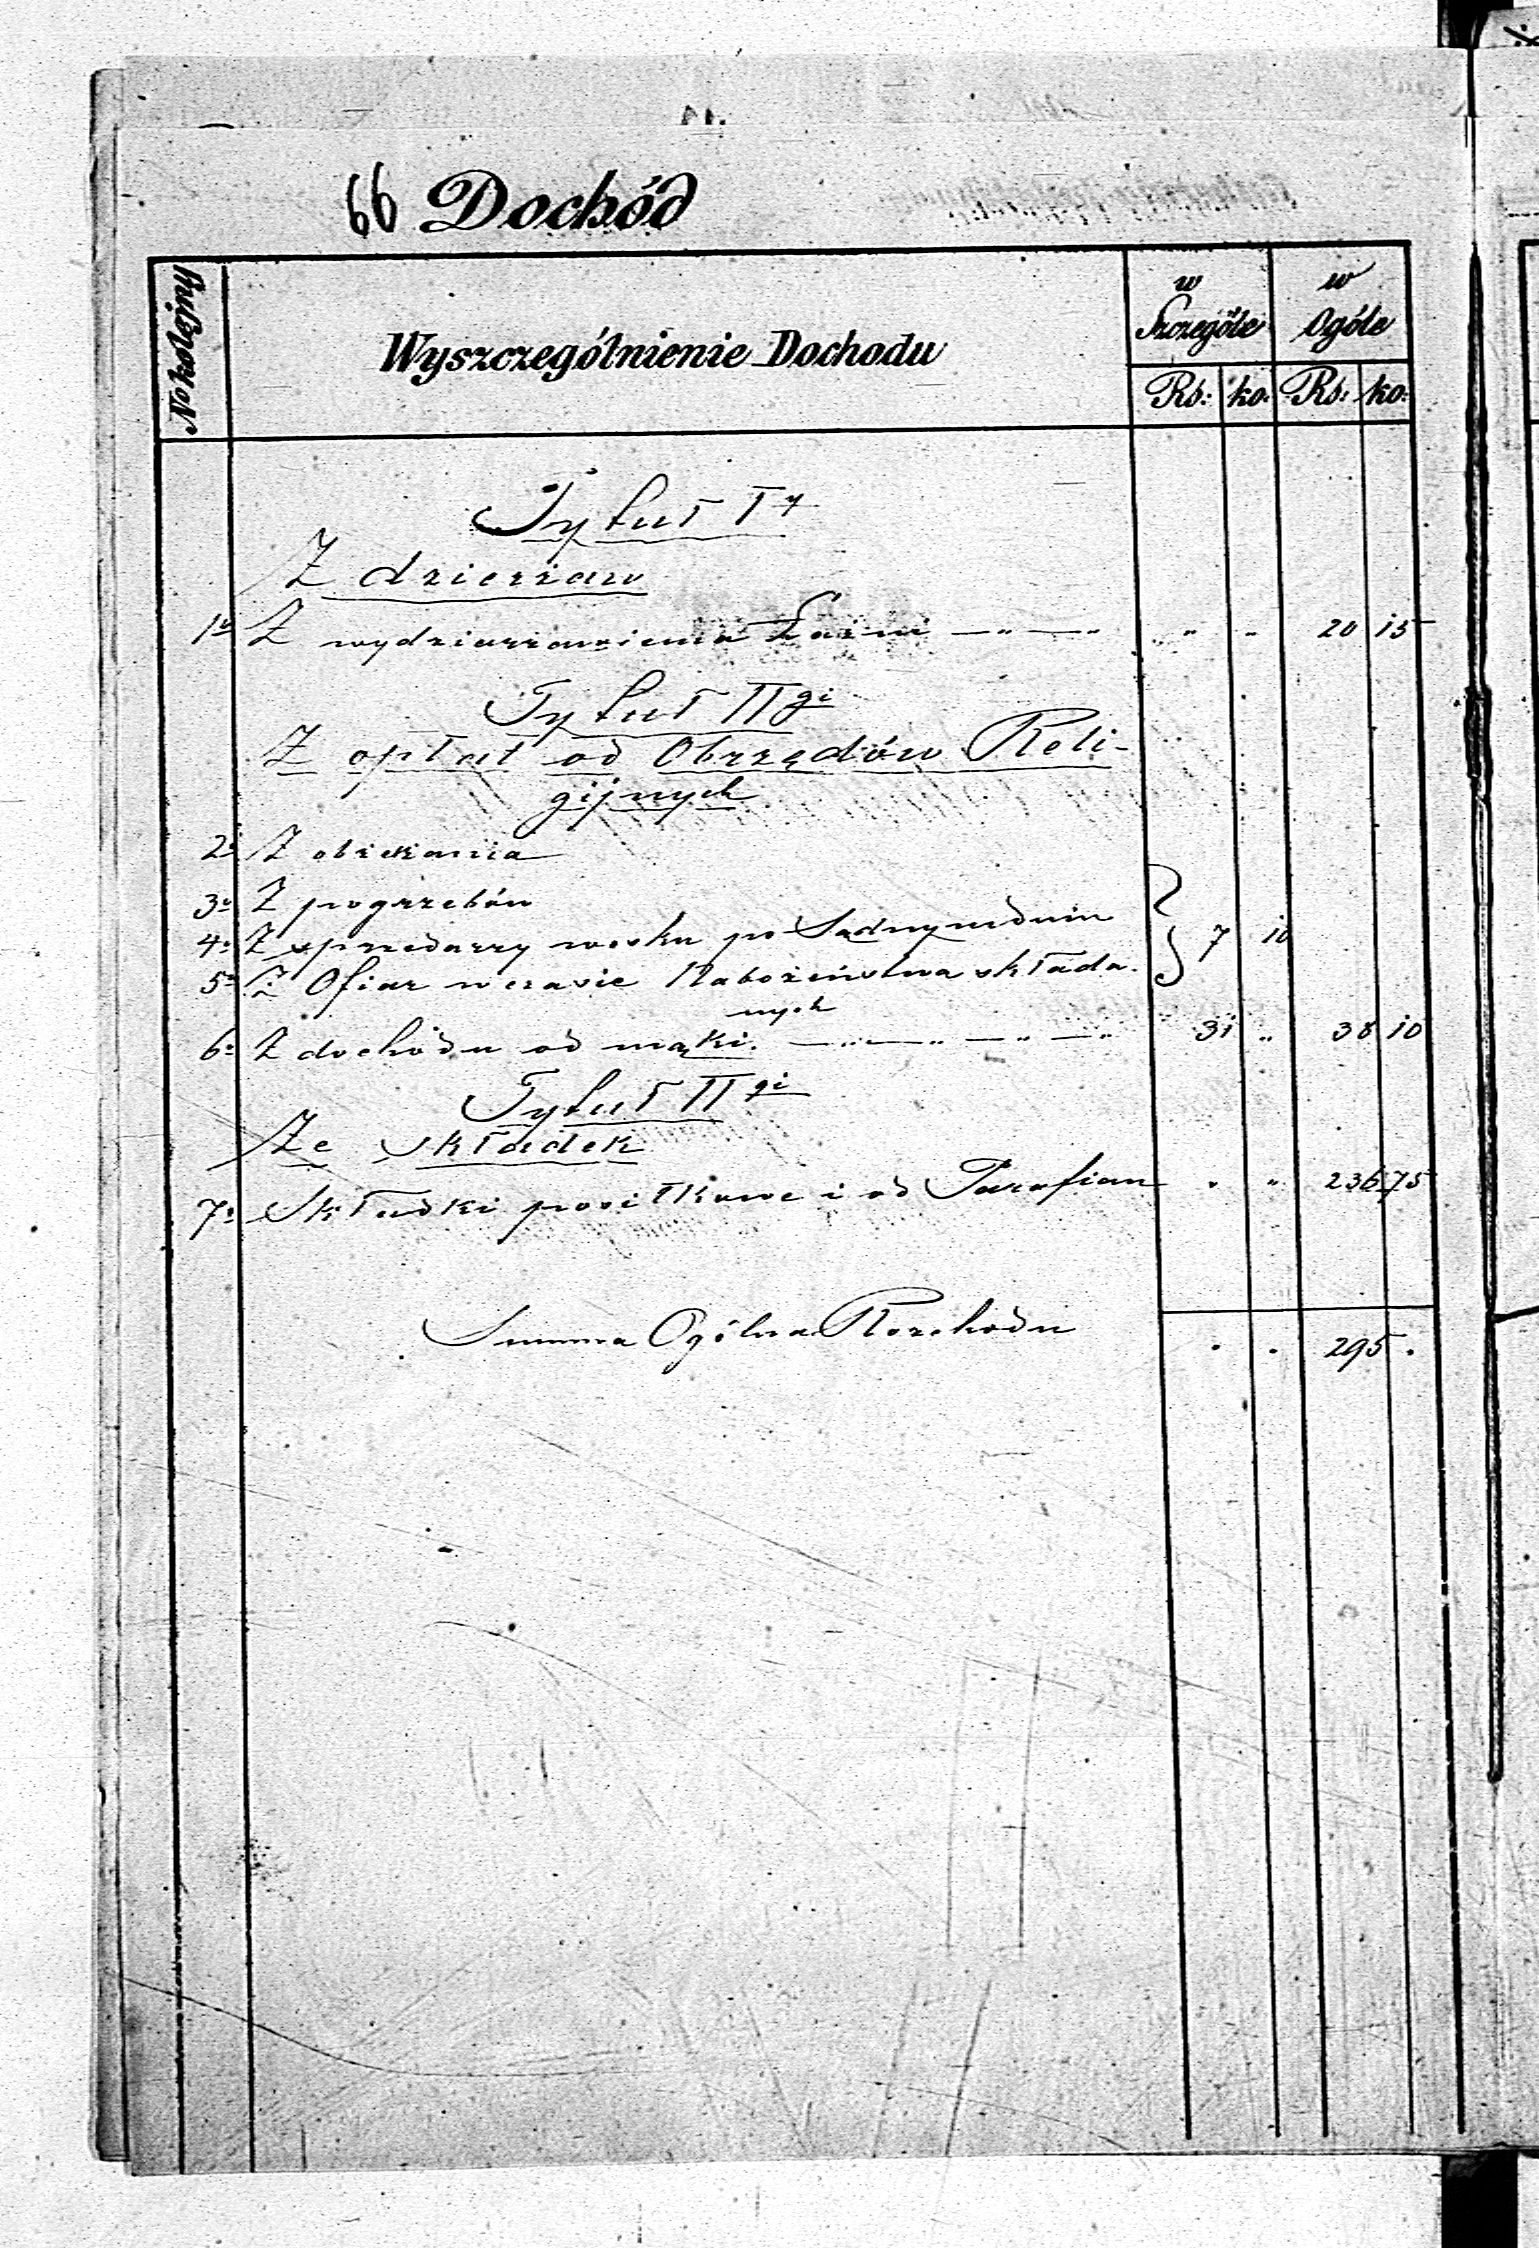 66 Dochód
No kolejny
Wyszczególnienie Dochodu
w Szczególe
w Ogóle
Rs: ko: Rs: ko:
Tytuł Iy
Z dzierżaw
1o Z wydzierżawienia Łaźni — " — " " " 20 15
Tytuł IIgi
Z opłat od Obrzędów Reli-
gijnych
2o Z obrzezania
3o Z pogrzebów
4o Z sprzedarzy wosku po Sądnymdniu 7 10
5o Z Ofiar wczasie Nabożeństwa składa.
nych
6o Z dochodu od mąki. — " — " — " — " 31 " 38 10
Tytuł IIgi
Ze składek
7o Składki posiłkowe i od Parafian " " 236 75
Summa Ogólna Rozchodu . . 295 .